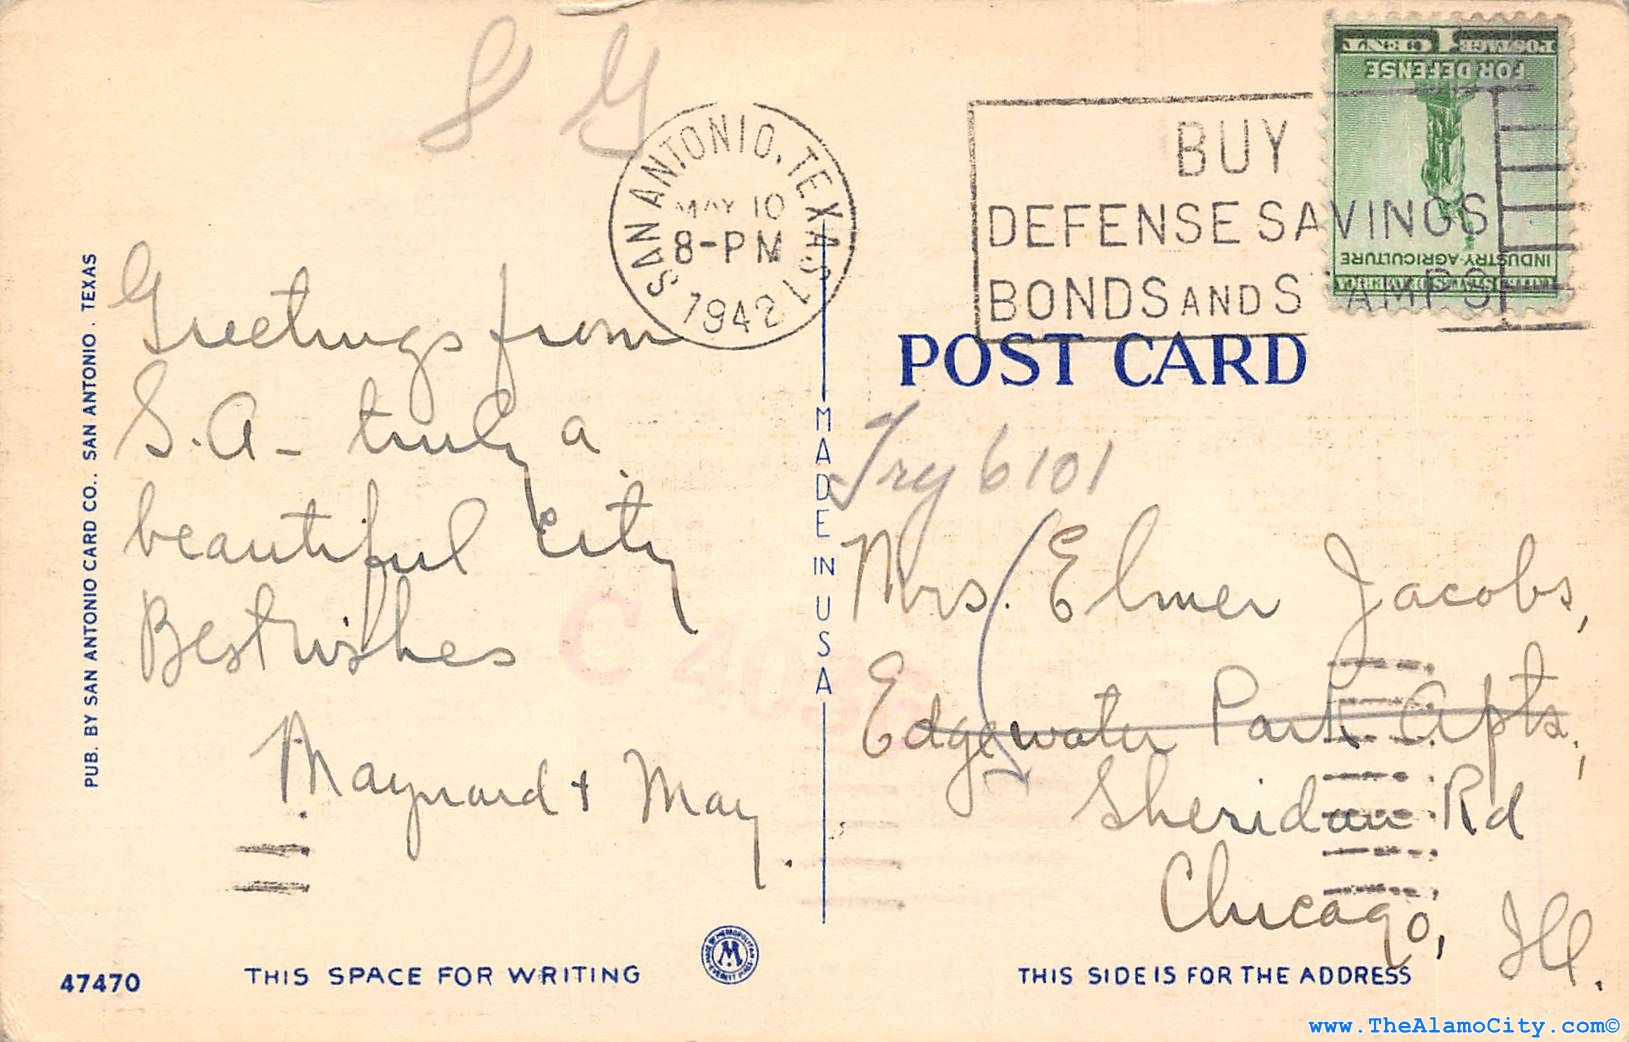 S G
SAN ANTONIO, TEXAS 1
MAY 10
8-PM
1942
BUY
DEFENSE SAVINGS
BONDS AND STAMPS
1
POSTAGE CENT
FOR DEFENSE
INDUSTRY AGRICULTURE
POST CARD
PUB. BY SAN ANTONIO CARD CO., SAN ANTONIO, TEXAS
Greetings from
S.A- truly a
beautiful city
Best wishes
Maynard + May.
MADE IN USA
Try 6101
Mrs. Elmer Jacobs,
Edgewater Park Apts.,
Sheridan Rd
Chicago, Ill.
47470
THIS SPACE FOR WRITING
M
THIS SIDE IS FOR THE ADDRESS
www.TheAlamoCity.com©